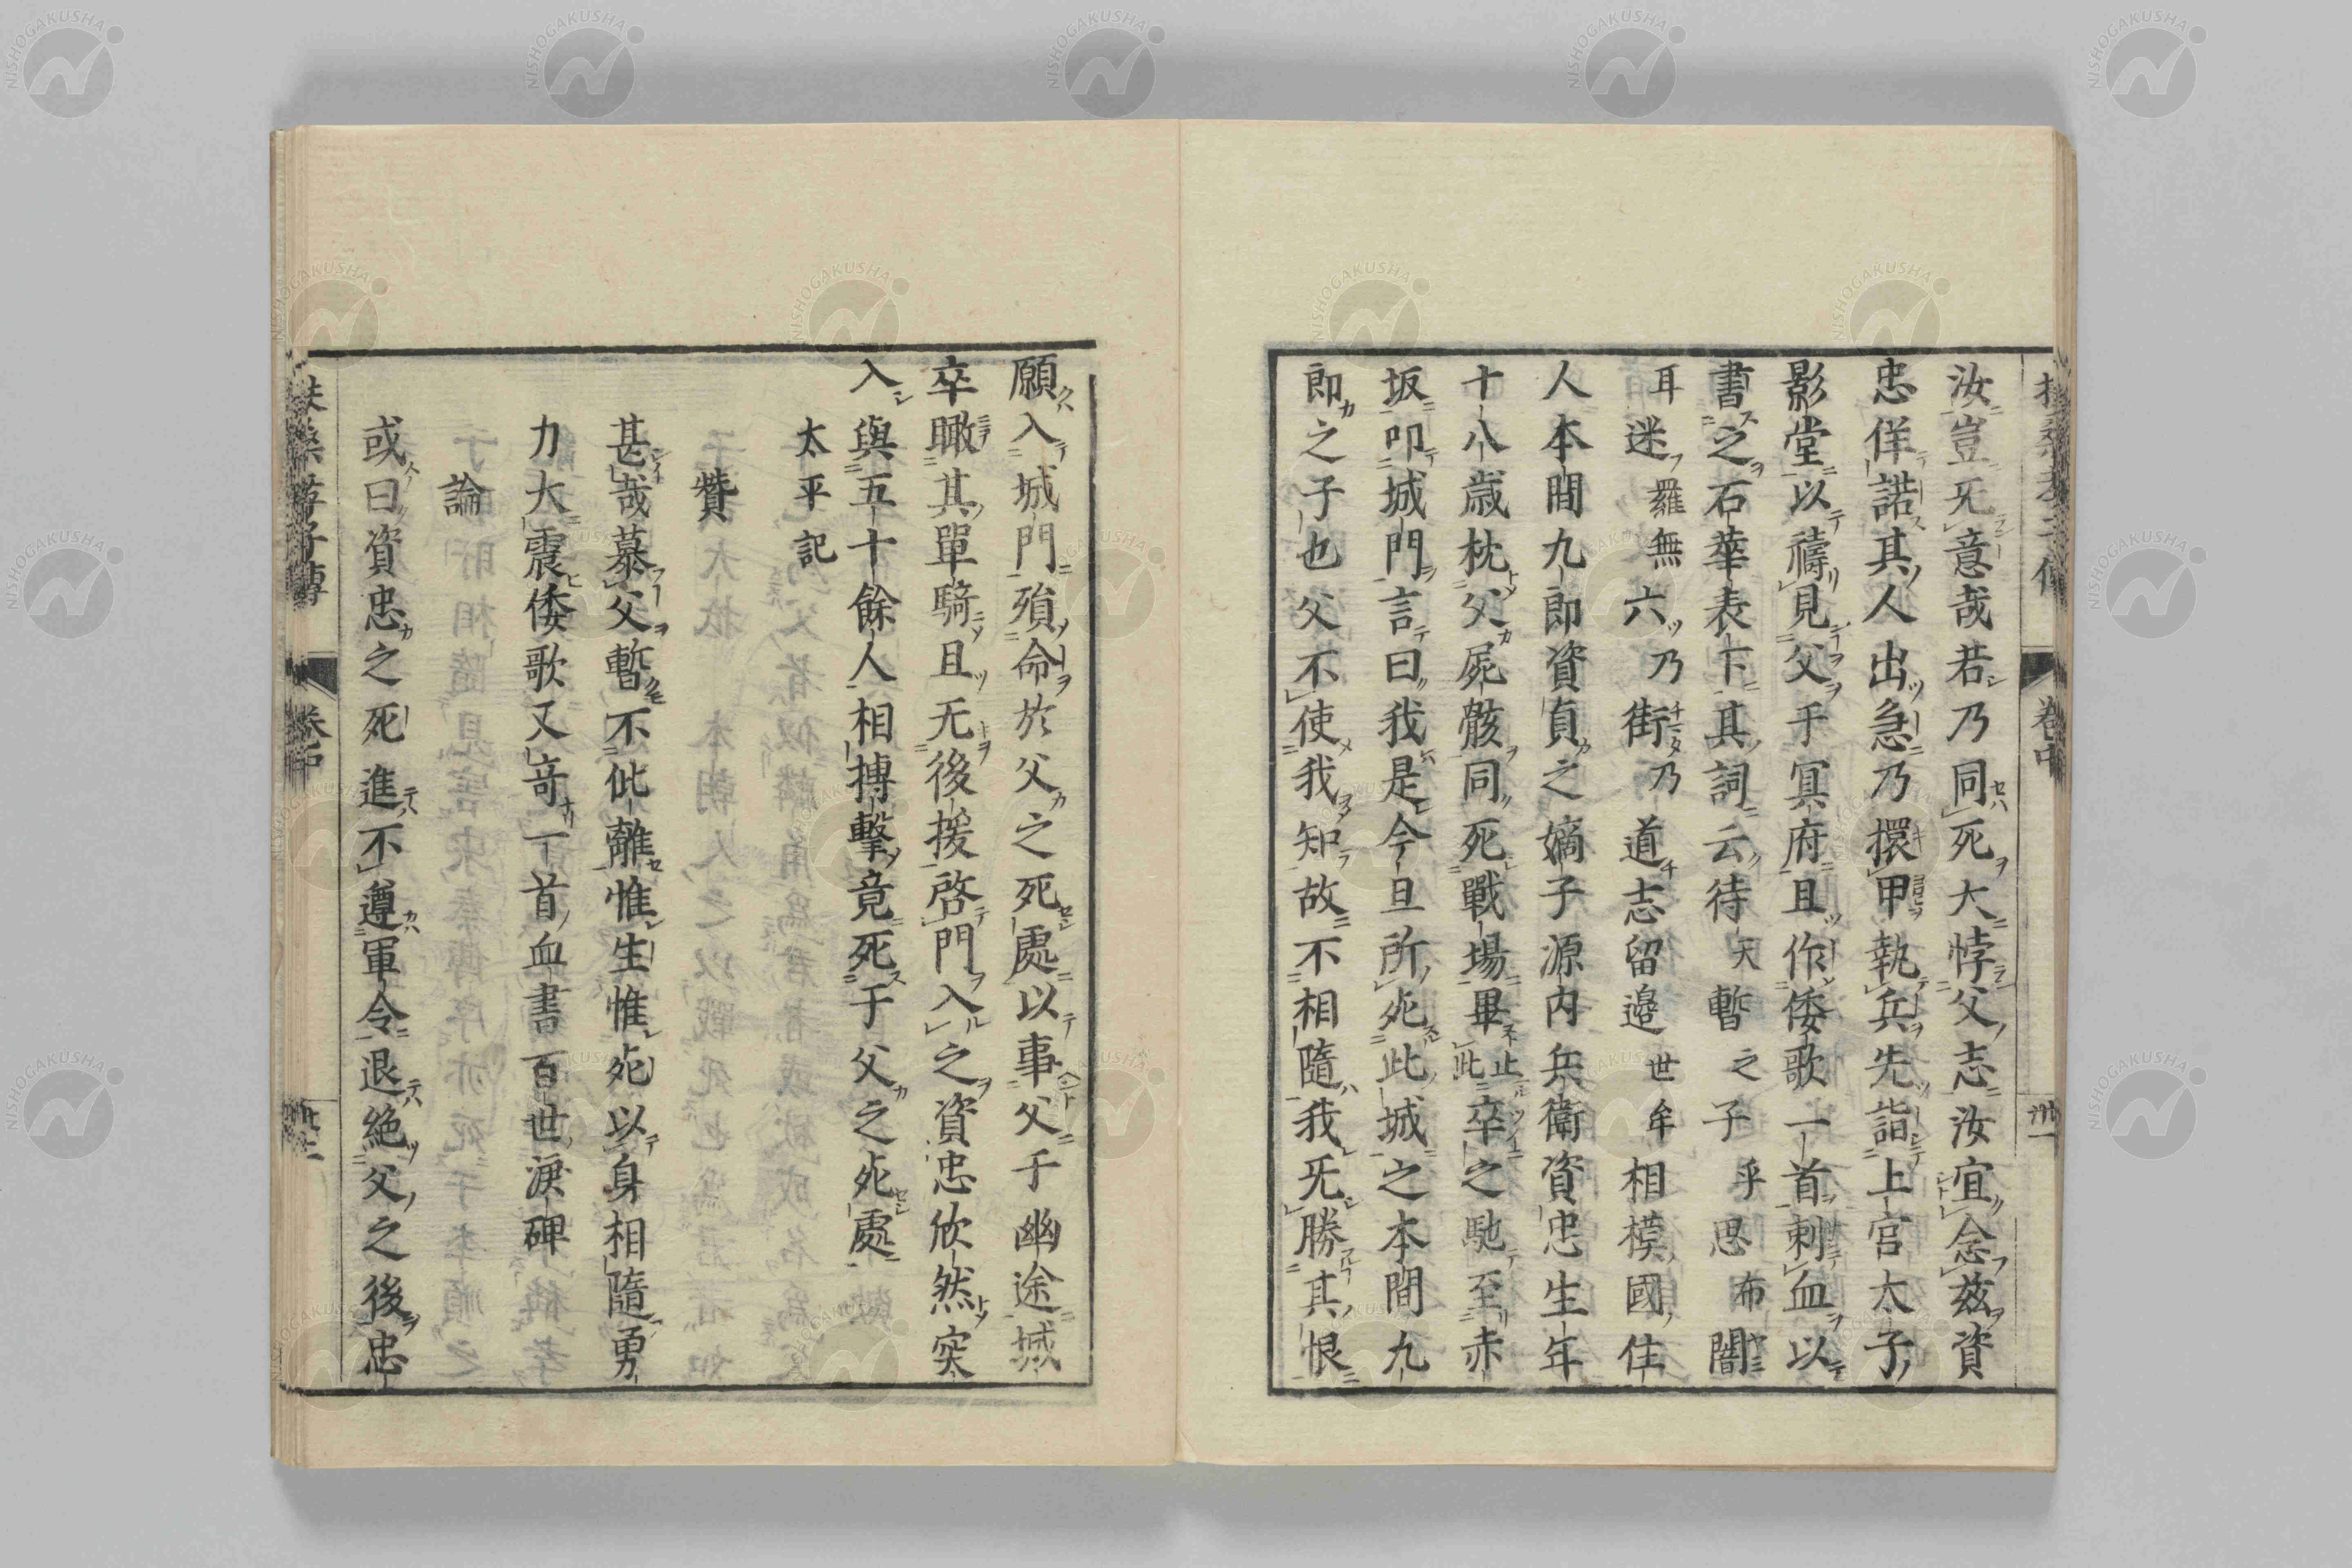 汝豈旡意哉若乃同死大悖父志汝宜念茲資
忠佯諾其人出急乃擐甲執兵先詣上官太子
影堂以禱見父于冥府且作倭歌一首刺血以
書之石華表下其詞云待天暫之子乎思布闇
耳迷羅無六乃街乃道志留邊世牟相模國住
人本間九郎資貞之嫡子源內兵衛資忠生年
十八歲枕父屍骸同死戰場畢止此卒之馳至赤
坂叩城門言曰我是今旦所死此城之本間九
郎之子也父不使我知故不相隨我旡勝其恨
卷中
卅一
願入城門殞命於父之死處以事父于幽途城
卒瞰其單騎且无後援啓門入之資忠欣然突
入與五十餘人相搏擊竟死于父之死處
太平記
贊
甚哉慕父暫不仳離惟生惟死以身相隨勇
力大震倭歌又竒一首血書百世淚碑
論
或曰資忠之死進不遵軍令退絕父之後忠
扶桑孝子傳
卷中
NISHOGAKUSHA